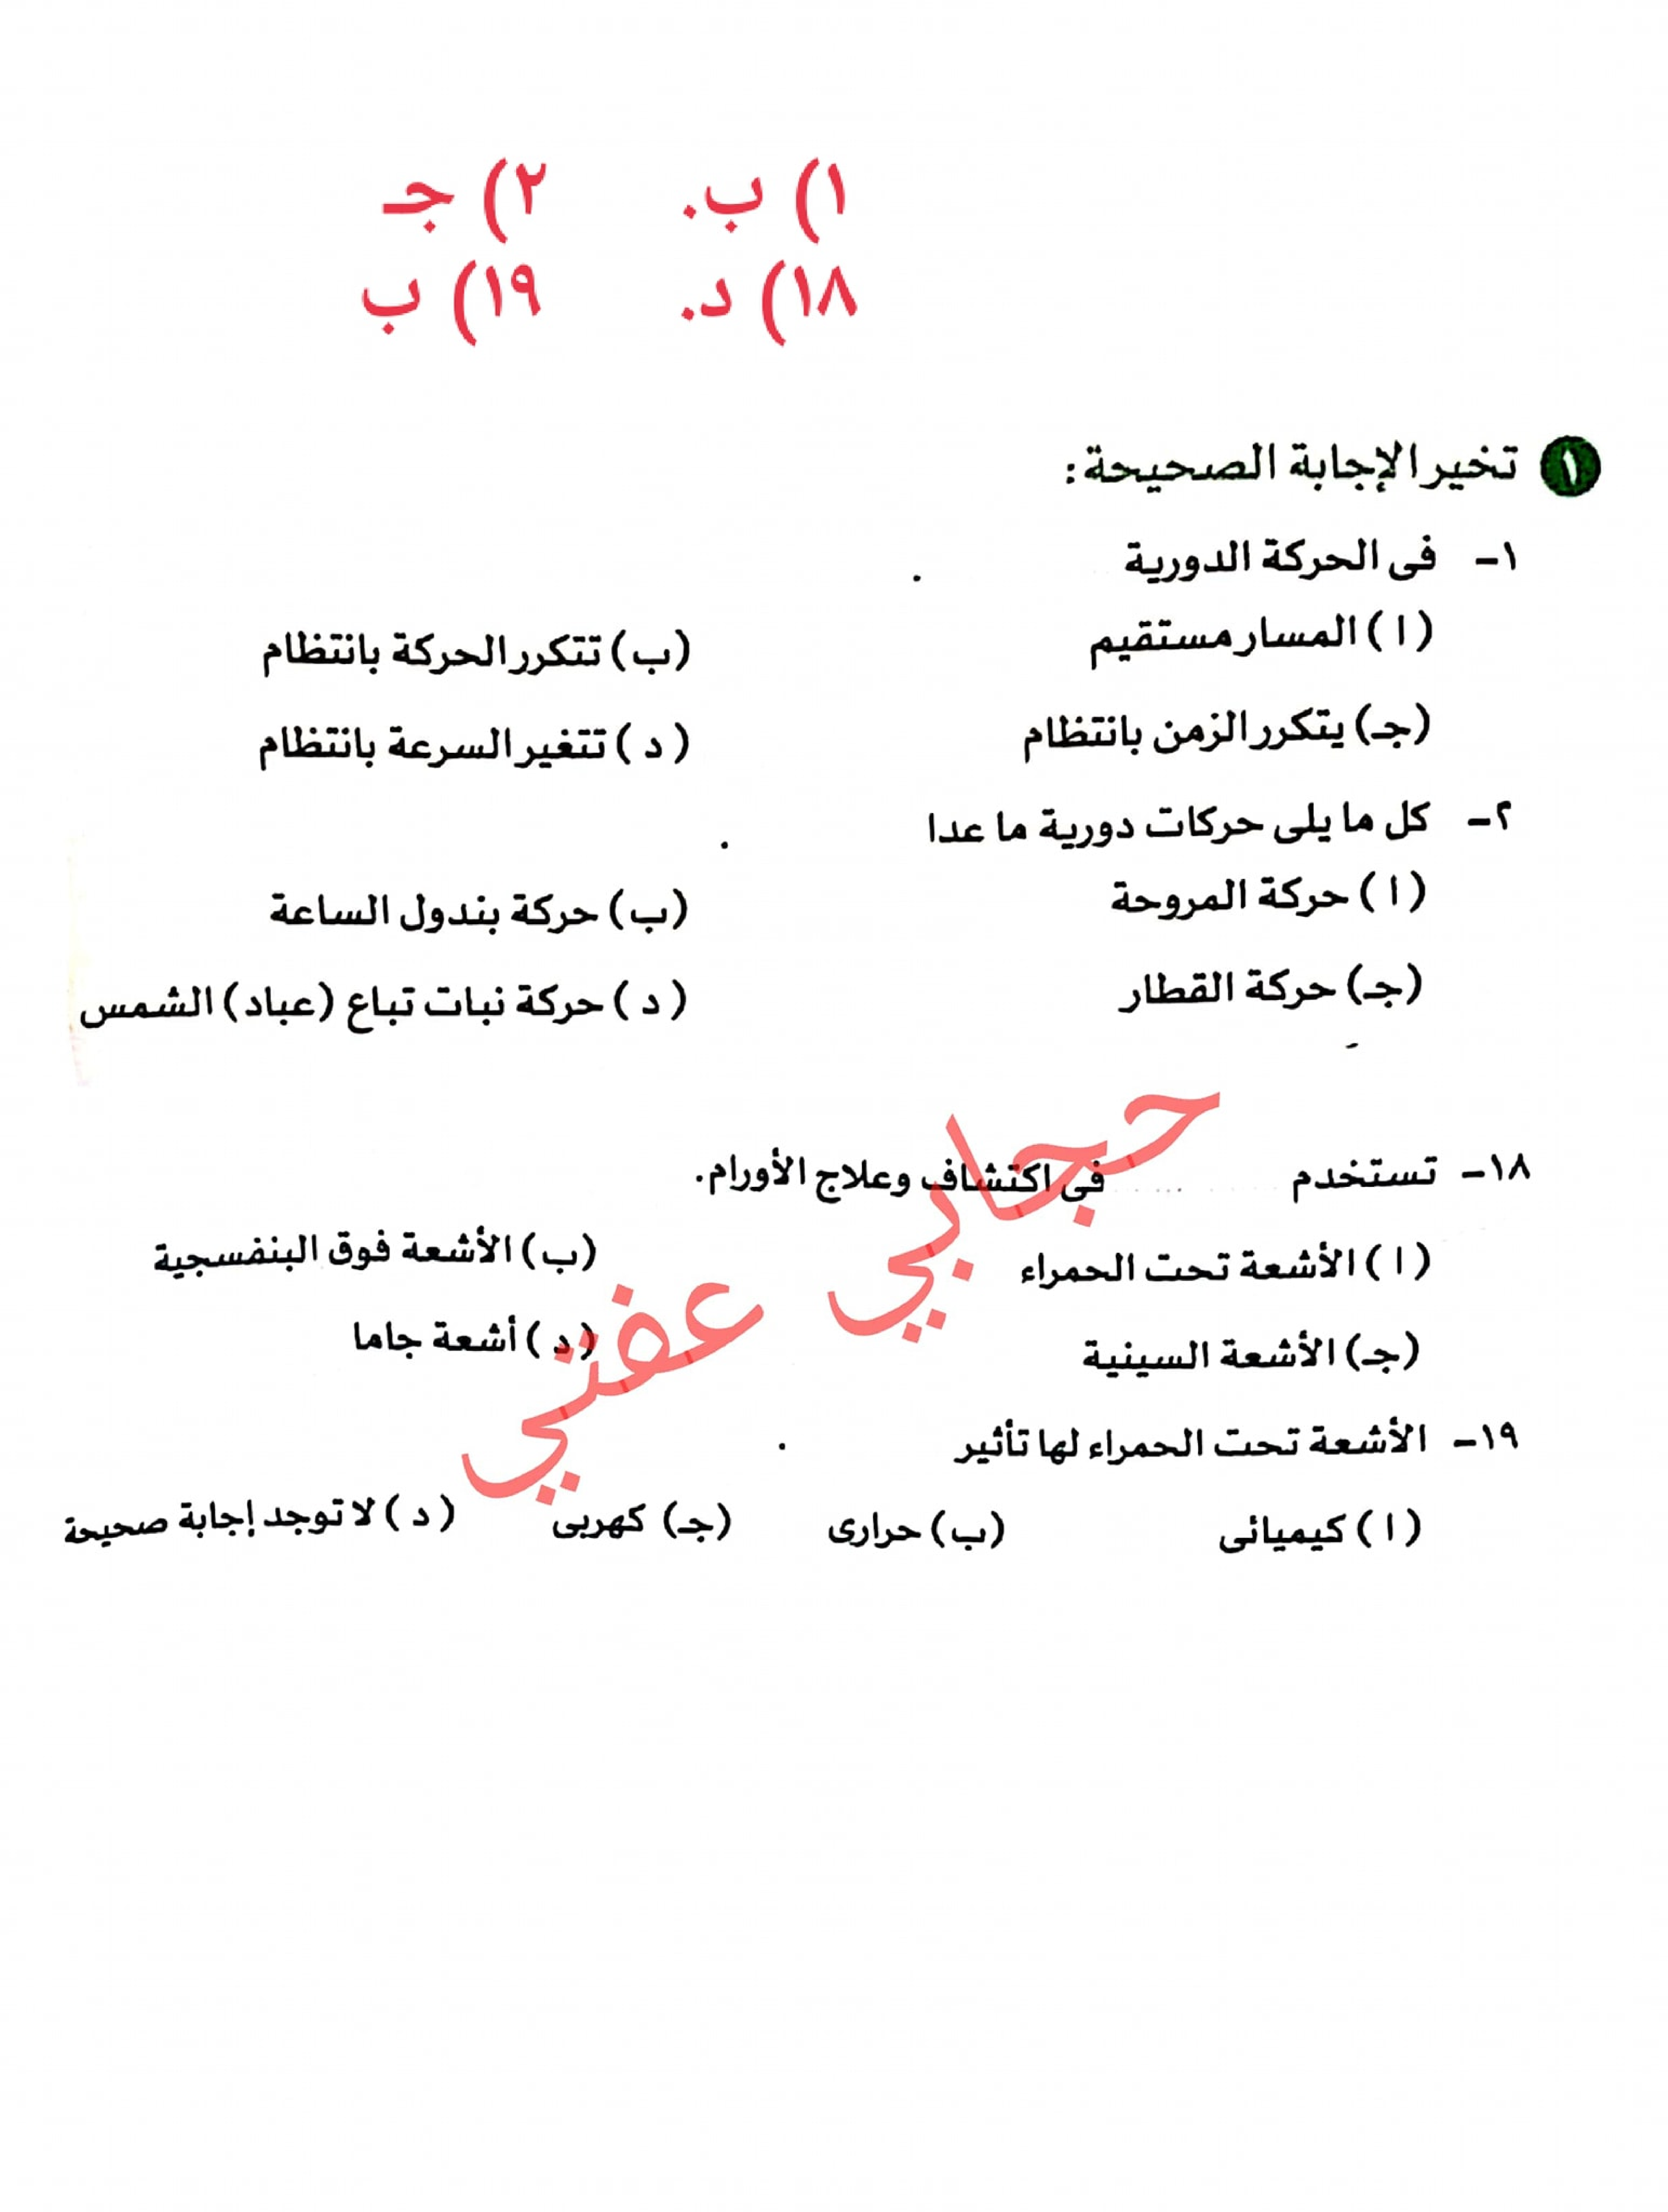 ١) ب. ٢) جـ
١٨) د. ١٩) ب
١ تخير الإجابة الصحيحة:
١- فى الحركة الدورية .
(ا) المسار مستقيم (ب) تتكرر الحركة بانتظام
(جـ) يتكرر الزمن بانتظام (د) تتغير السرعة بانتظام
٢- كل ما يلى حركات دورية ما عدا .
(ا) حركة المروحة (ب) حركة بندول الساعة
(جـ) حركة القطار (د) حركة نبات تباع (عباد) الشمس
١٨- تستخدم ..... فى اكتشاف وعلاج الأورام.
(ا) الأشعة تحت الحمراء (ب) الأشعة فوق البنفسجية
(جـ) الأشعة السينية (د) أشعة جاما
١٩- الأشعة تحت الحمراء لها تأثير .
(ا) كيميائى (ب) حرارى (جـ) كهربى (د) لا توجد إجابة صحيحة
حجابي عفتي